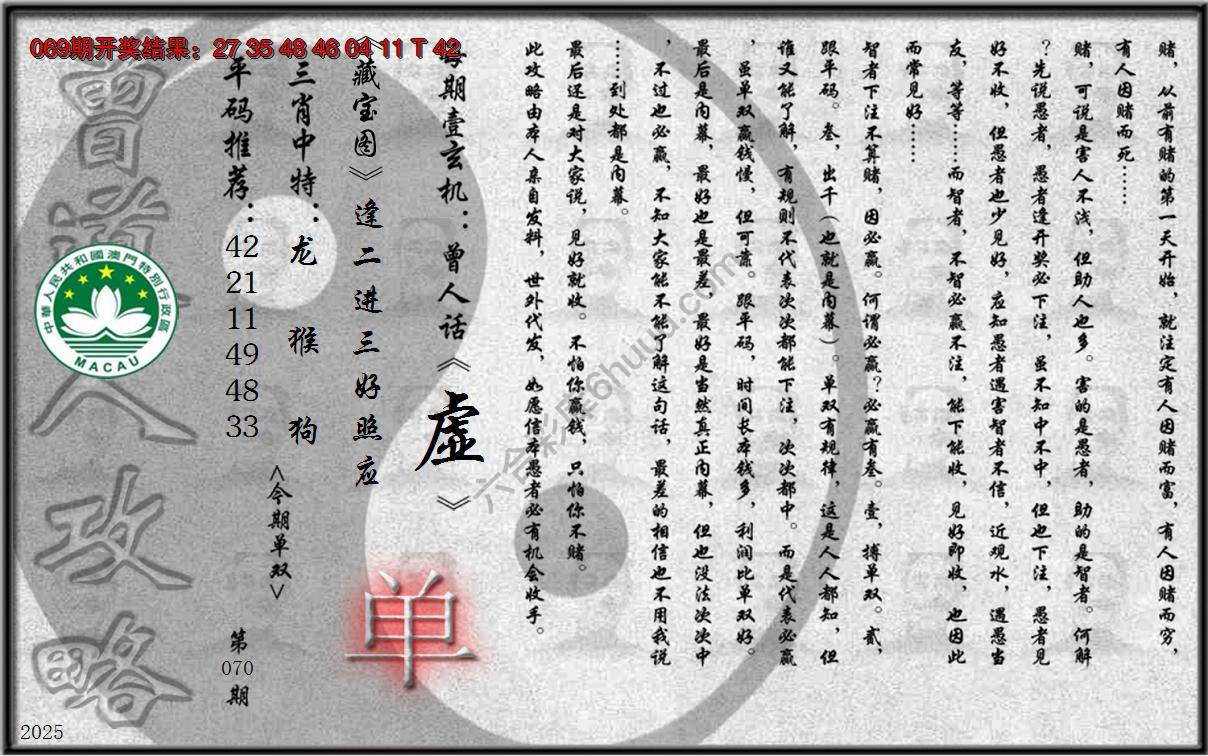 069期开奖结果：27 35 48 46 04 11 T 42
赌，从前有赌的第一天开始，就注定有人因赌而富，有人因赌而穷，
有人因赌而死……
赌，可说是害人不浅，但助人也多。害的是愚者，助的是智者。何解
？先说愚者，愚者逢开奖必下注，虽不知中不中，但也下注，愚者见
好不收，但愚者也少见好，应知愚者遇害智者不信，近观水，遇愚当
友，等等……而智者，不智必赢不注，能下能收，见好即收，也因此
而常见好……
智者下注不算赌，因必赢。何谓必赢？必赢有叁。壹，搏单双。贰，
跟平码。叁，出千（也就是内幕）。单双有规律，这是人人都知，但
谁又能了解，有规则不代表次次都能下注，次次都中。而是代表必赢
，虽单双赢钱慢，但可靠。跟平码，时间长本钱多，利润比单双好。
最后是内幕，最好也是最差，最好是当然真正内幕，但也没法次次中
，不过也必赢，不知大家能不能了解这句话，最差的相信也不用我说
……到处都是内幕。
最后还是对大家说，见好就收。不怕你赢钱，只怕你不赌。
此攻略由本人亲自发料，世外代发，如愿信本愚者必有机会收手。
每期壹玄机：曾人话《虚》
《藏宝图》逢二进三好照应
三肖中特：龙 猴 狗
平码推荐：42 21 11 49 48 33
<今期单双>
单
第070期
曾道人攻略
中華人民共和國澳門特別行政區
MACAU
六合彩库6huuu.com
2025